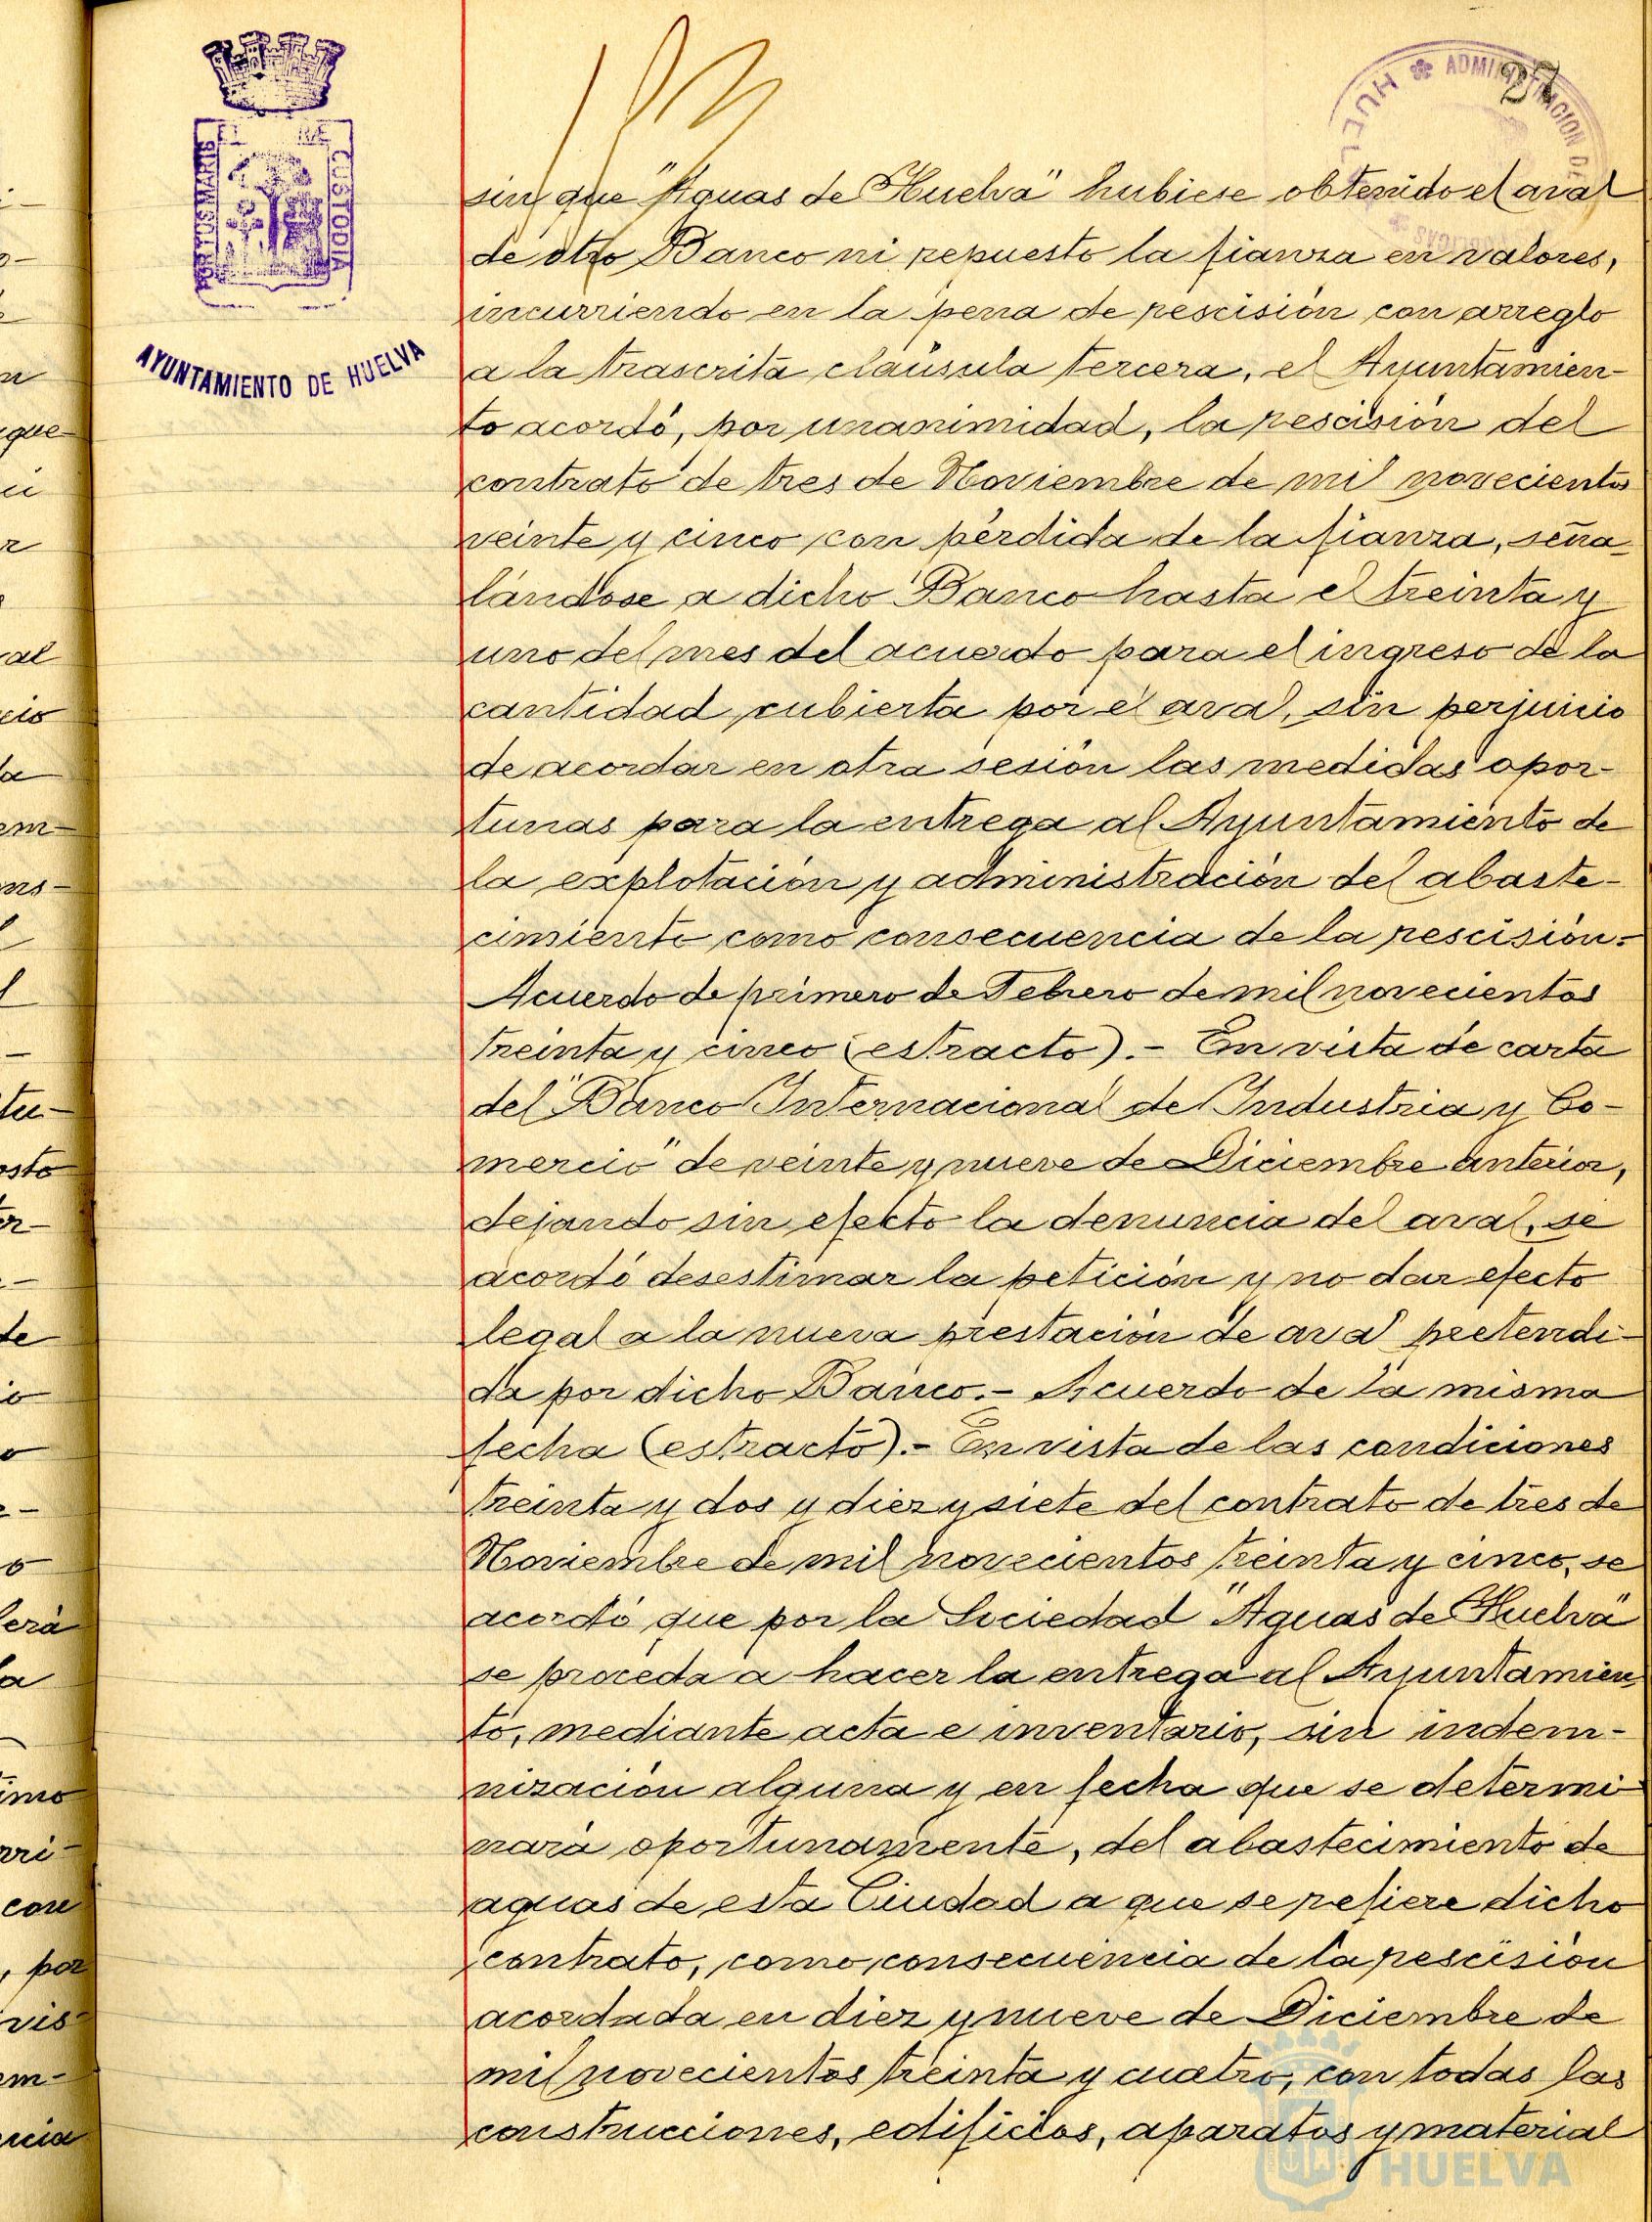 27
ADMINISTRACION DE
HUELVA
PORTUS MARIS
CUSTODIA
AYUNTAMIENTO DE HUELVA
sin que "Aguas de Huelva" hubiese obtenido el aval
de otro Banco ni repuesto la fianza en valores,
incurriendo en la pena de rescisión con arreglo
a la trascrita claúsula tercera, el Ayuntamien-
to acordó, por unanimidad, la rescisión del
contrato de tres de Noviembre de mil novecientos
veinte y cinco con pérdida de la fianza, seña-
lándose a dicho Banco hasta el treinta y
uno del mes del acuerdo para el ingreso de la
cantidad cubierta por el aval, sin perjuicio
de acordar en otra sesión las medidas opor-
tunas para la entrega al Ayuntamiento de
la explotación y administración del abaste-
cimiento como consecuencia de la rescisión.-
Acuerdo de primero de Febrero de mil novecientos
treinta y cinco (estracto).- En vista de carta
del "Banco Internacional de Industria y Co-
mercio" de veinte y nueve de Diciembre anterior,
dejando sin efecto la denuncia del aval, se
acordó desestimar la petición y no dar efecto
legal a la nueva prestación de aval pretendi-
da por dicho Banco.- Acuerdo de la misma
fecha (estracto).- En vista de las condiciones
treinta y dos y diez y siete del contrato de tres de
Noviembre de mil novecientos treinta y cinco, se
acordó que por la Sociedad "Aguas de Huelva"
se proceda a hacer la entrega al Ayuntamien-
to, mediante acta e inventario, sin indem-
nización alguna y en fecha que se determi-
nará oportunamente, del abastecimiento de
aguas de esta Ciudad a que se refiere dicho
contrato, como consecuencia de la rescisión
acordada en diez y nueve de Diciembre de
mil novecientos treinta y cuatro, con todas las
construcciones, edificios, aparatos y material
HUELVA